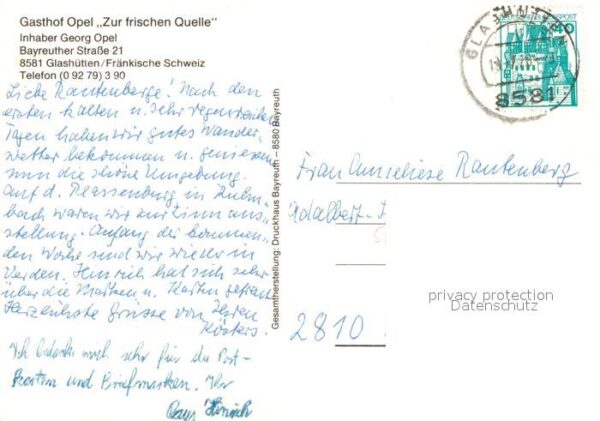 Gasthof Opel „Zur frischen Quelle“
Inhaber Georg Opel
Bayreuther Straße 21
8581 Glashütten/Fränkische Schweiz
Telefon (0 92 79) 3 90
Liebe Rautenbergs! Nach den
ersten kalten u. sehr regenreichen
Tagen haben wir gutes Wander,,
wetter bekommen u. geniessen
nun die schöne Umgebung.
Auf d. Plassenburg in Kulm,,
bach waren wir zur Zinn aus,,
stellung. Anfang der kommen,,
den Woche sind wir wieder in
Verden. Hinrich hat sich sehr
über die Marken u. Karten gefreut
Herzlichste Grüsse von Ihren
Kösters.
Ich bedanke mich sehr für die Post-
karten und Briefmarken. Ihr
Hinrich
Gesamtherstellung: Druckhaus Bayreuth – 8580 Bayreuth
GLASHÜTTEN
8581
40
Frau Anneliese Rautenberg
Adalbert-
2810
privacy protection
Datenschutz